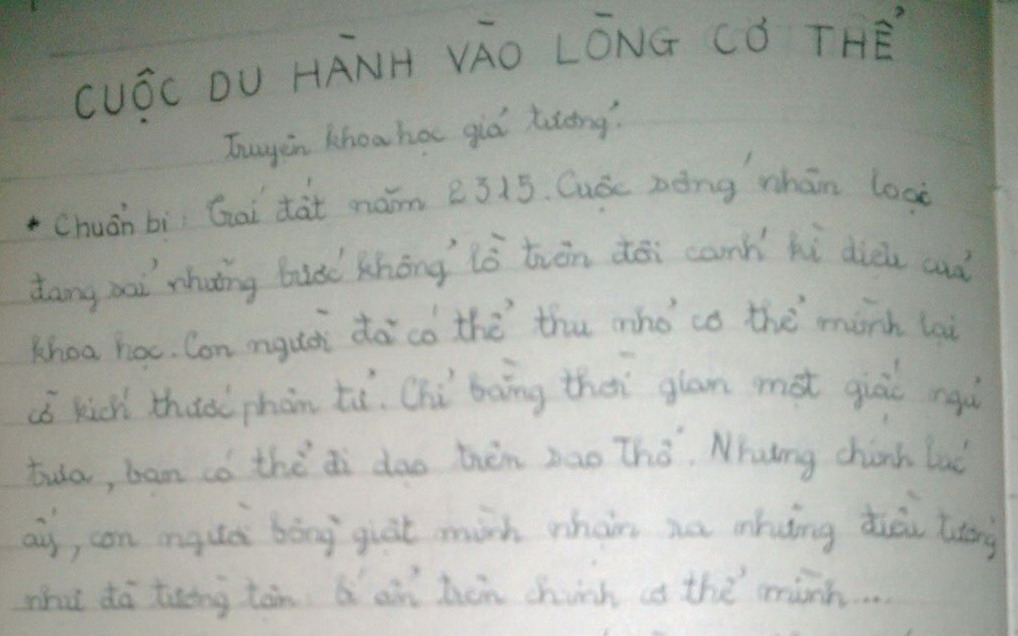 CUỘC DU HÀNH VÀO LÒNG CƠ THỂ
Truyện khoa học giả tưởng.
* Chuẩn bị: Trái đất năm 2315. Cuộc sống nhân loại
đang sải những bước khổng lồ trên đôi cánh kì diệu của
khoa học. Con người đã có thể thu nhỏ cơ thể mình lại
cỡ kích thước phân tử. Chỉ bằng thời gian một giấc ngủ
trưa, bạn có thể đi dạo trên sao Thổ. Nhưng chính lúc
ấy, con người bỗng giật mình nhận ra những điều tưởng
như đã tường tận: bí ẩn trên chính cơ thể mình...